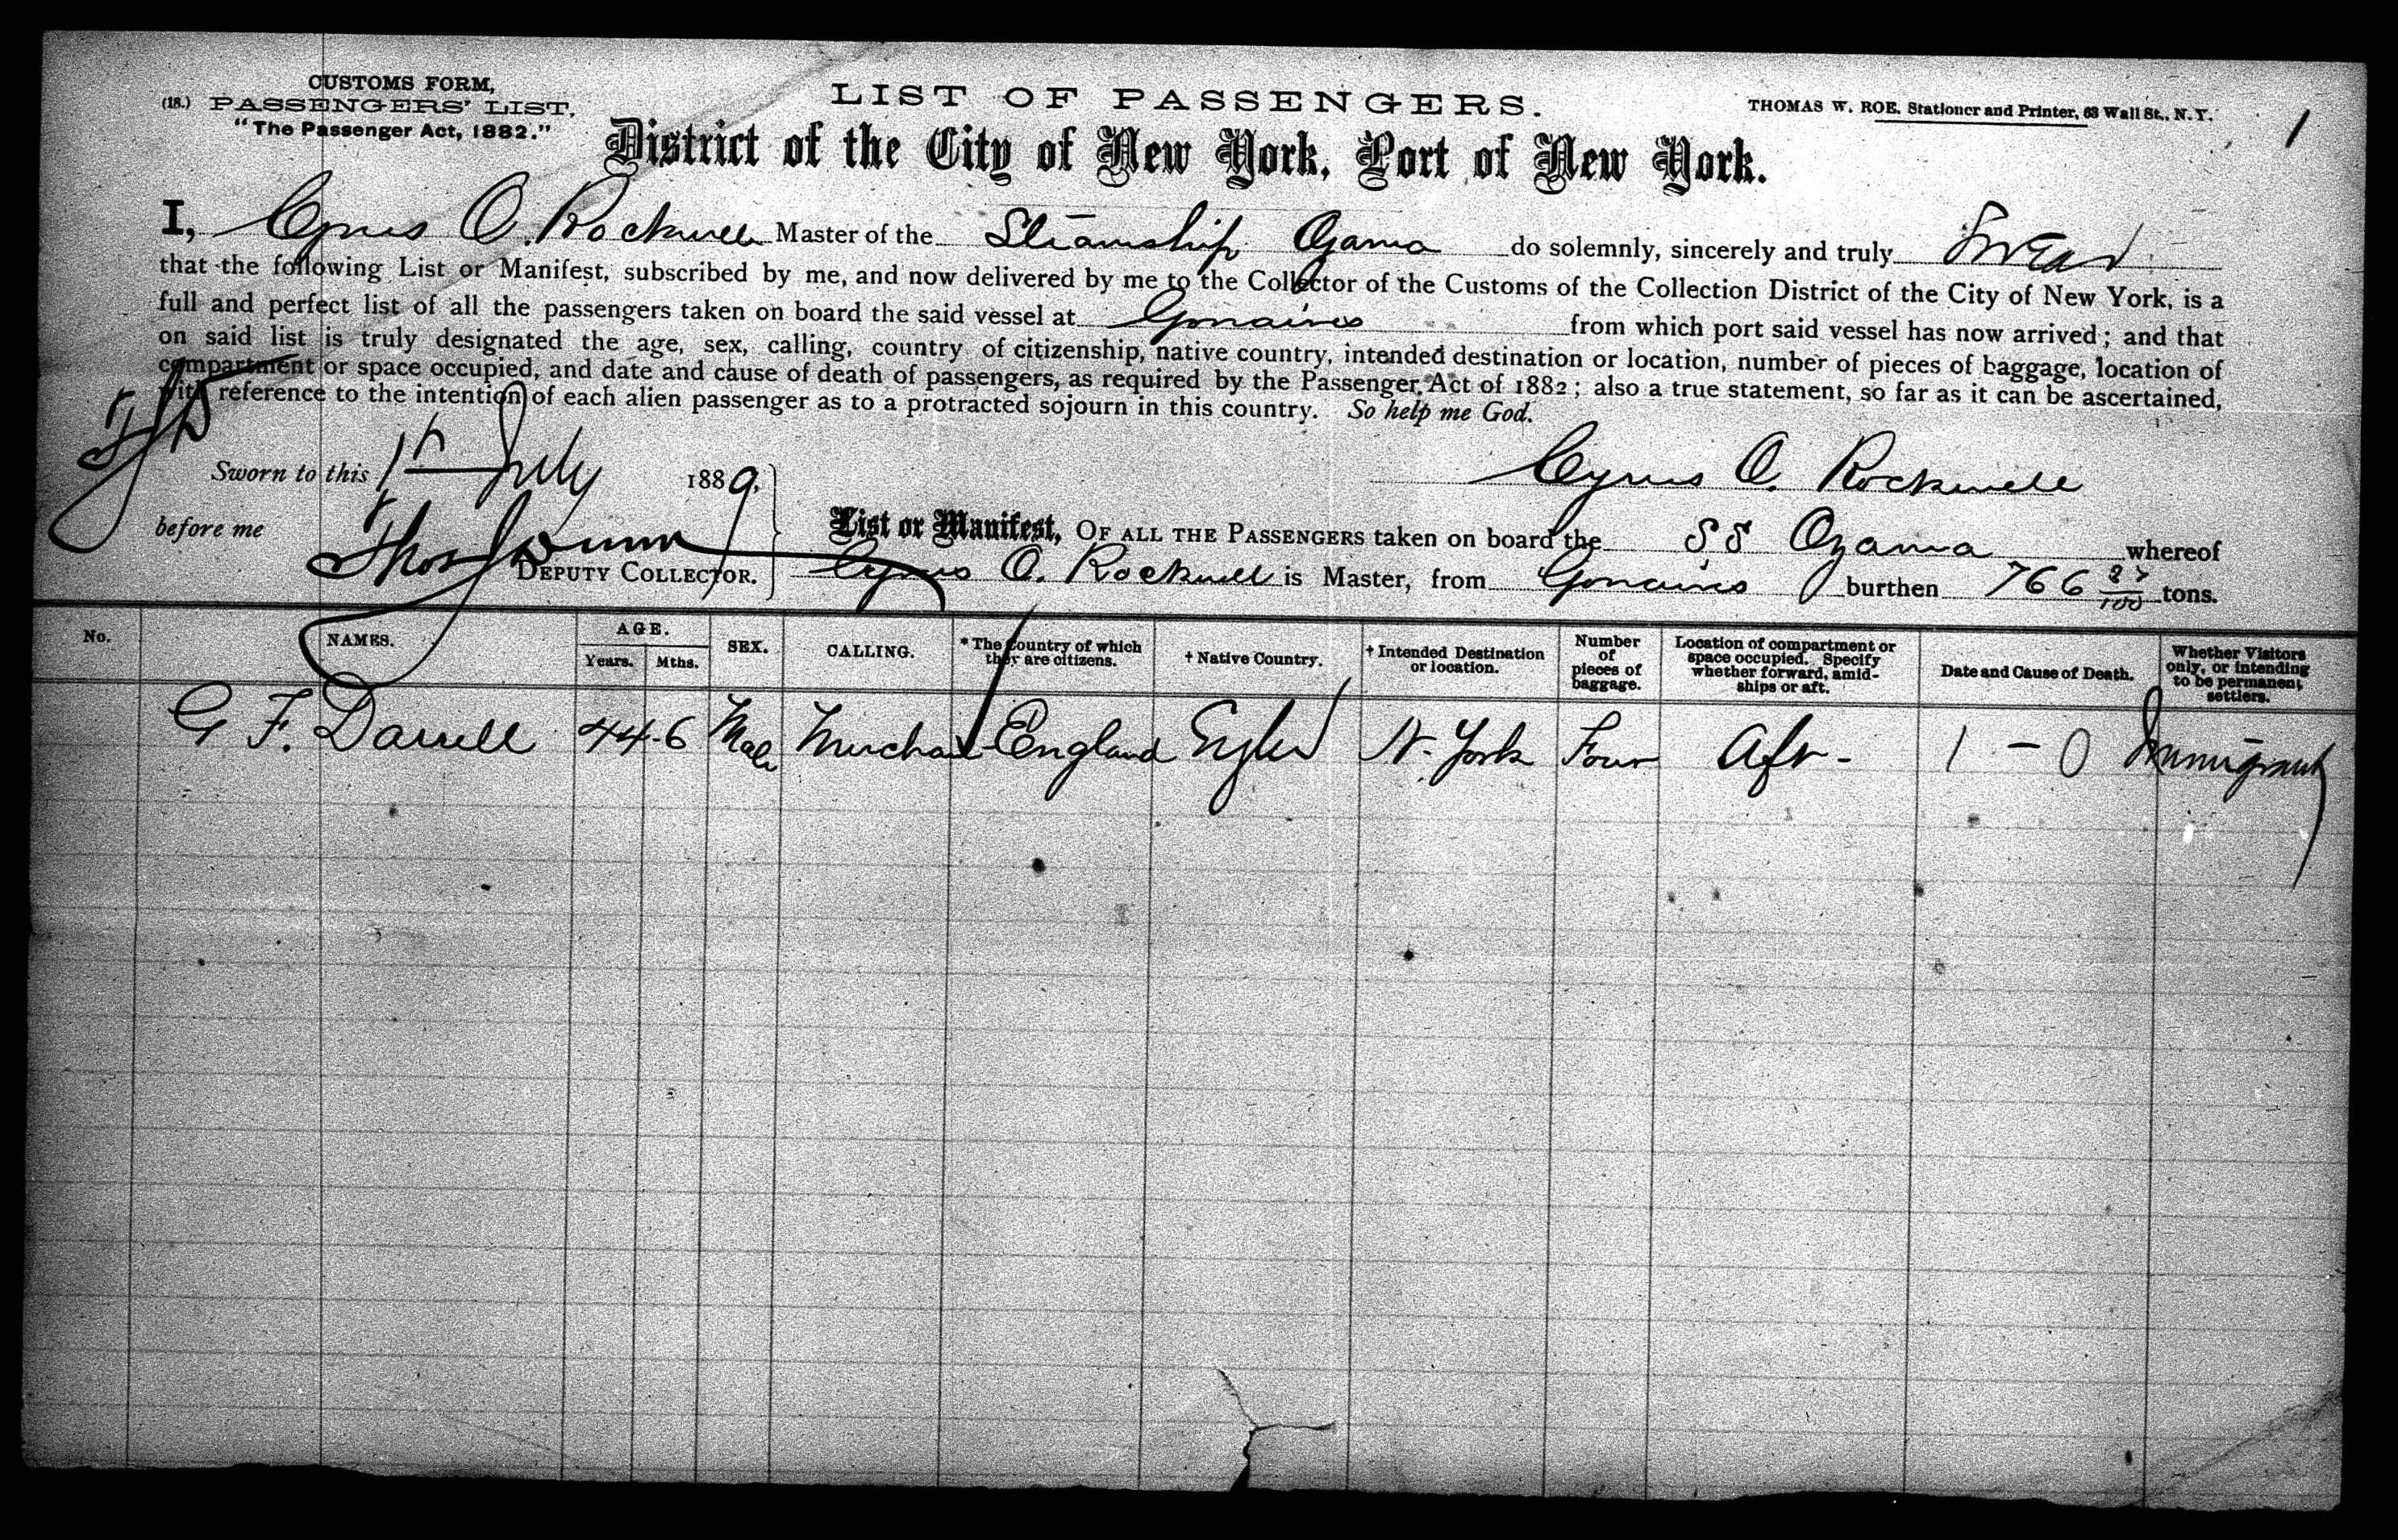 CUSTOMS FORM,
(18.) PASSENGERS' LIST,
"The Passenger Act, 1882."
LIST OF PASSENGERS.
THOMAS W. ROE, Stationer and Printer, 63 Wall St., N.Y.
1
District of the City of New York, Port of New York.
I, Cyrus O. Rockwell Master of the Steamship Ozama do solemnly, sincerely and truly Swear
that the following List or Manifest, subscribed by me, and now delivered by me to the Collector of the Customs of the Collection District of the City of New York, is a
full and perfect list of all the passengers taken on board the said vessel at Gonaives from which port said vessel has now arrived; and that
on said list is truly designated the age, sex, calling, country of citizenship, native country, intended destination or location, number of pieces of baggage, location of
compartment or space occupied, and date and cause of death of passengers, as required by the Passenger Act of 1882; also a true statement, so far as it can be ascertained,
with reference to the intention of each alien passenger as to a protracted sojourn in this country. So help me God.
Sworn to this 1st July 1889,
Cyrus O. Rockwell
before me
Thos Dunn
DEPUTY COLLECTOR.
List or Manifest, OF ALL THE PASSENGERS taken on board the SS Ozama whereof
Cyrus O. Rockwell is Master, from Gonaives burthen 766 27/100 tons.
No. NAMES. AGE. Years. Mths. SEX. CALLING. * The Country of which they are citizens. † Native Country. † Intended Destination or location. Number of pieces of baggage. Location of compartment or space occupied. Specify whether forward, amidships or aft. Date and Cause of Death. Whether Visitors only, or intending to be permanent settlers.
G F. Darrell 44-6 Male Merchant England N. York Four Aft - 1 - 0 Immigrant